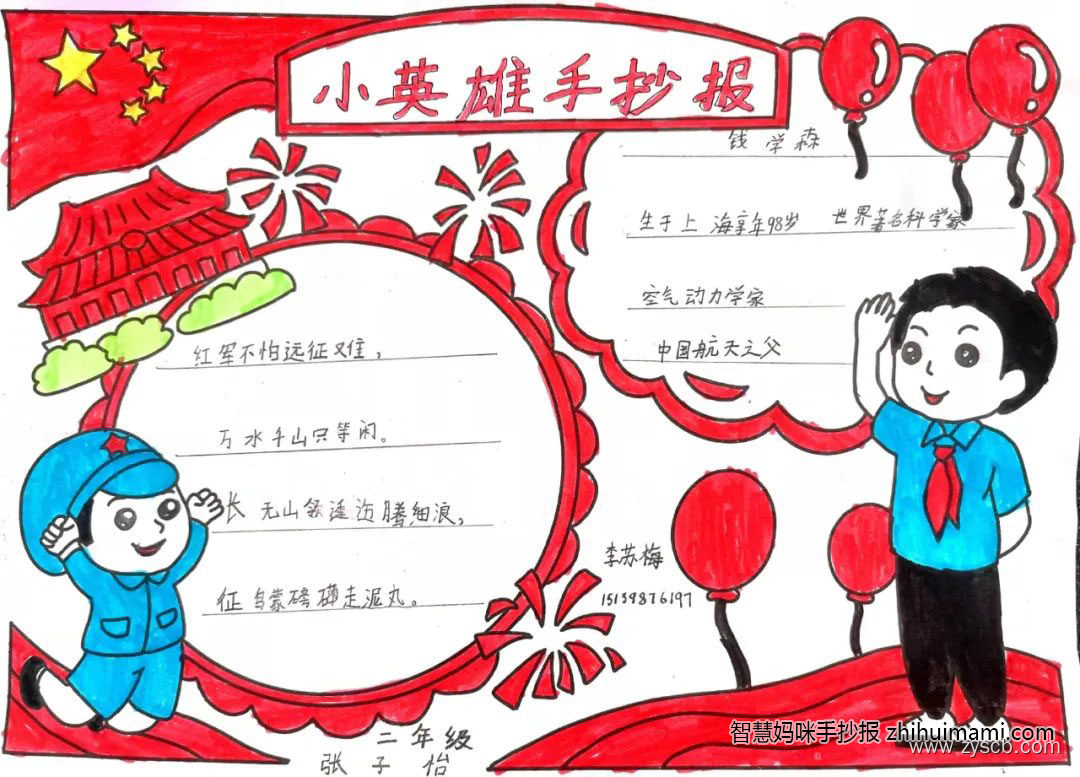 小英雄手抄报
钱学森
生于上海享年98岁 世界著名科学家
空气动力学家
中国航天之父
红军不怕远征难，
万水千山只等闲。
长 无山领逶迤腾细浪，
征 乌蒙磅礴走泥丸。
李苏梅
15139876197
二年级
张子怡
智慧妈咪手抄报 zhihuimami.com
www.zyscb.com